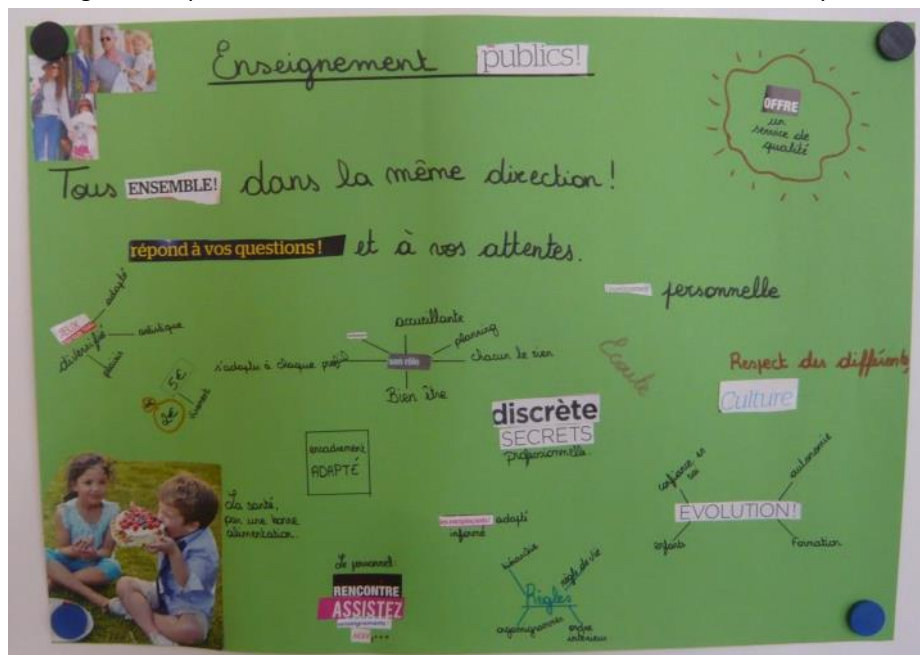 Enseignement publics!
OFFRE
un
service de
qualité
Tous ENSEMBLE! dans la même direction!
répond à vos questions! et à vos attentes.
personnelle
JEUX
adapté
artistique
diversifié
plaisir
accueillante
planning
son rôle
chacun le sien
s'adapte à chaque
Bien être
5€
2€
Ecoute
Respect des différents
Culture
discrète
SECRETS
professionnelle
encadrement
ADAPTÉ
La santé,
par une bonne
alimentation.
adapté
informé
confiance en
soi
autonomie
EVOLUTION!
enfants
Formation
Le personnel:
RENCONTRE
ASSISTEZ
hiérarchie
règle de vie
Règles
organigrammes
ordre
intérieur